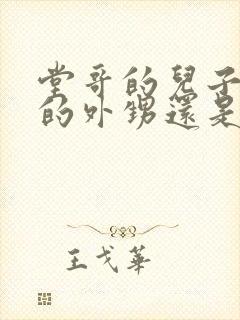 堂哥的兒子
的外甥還是
王戈華